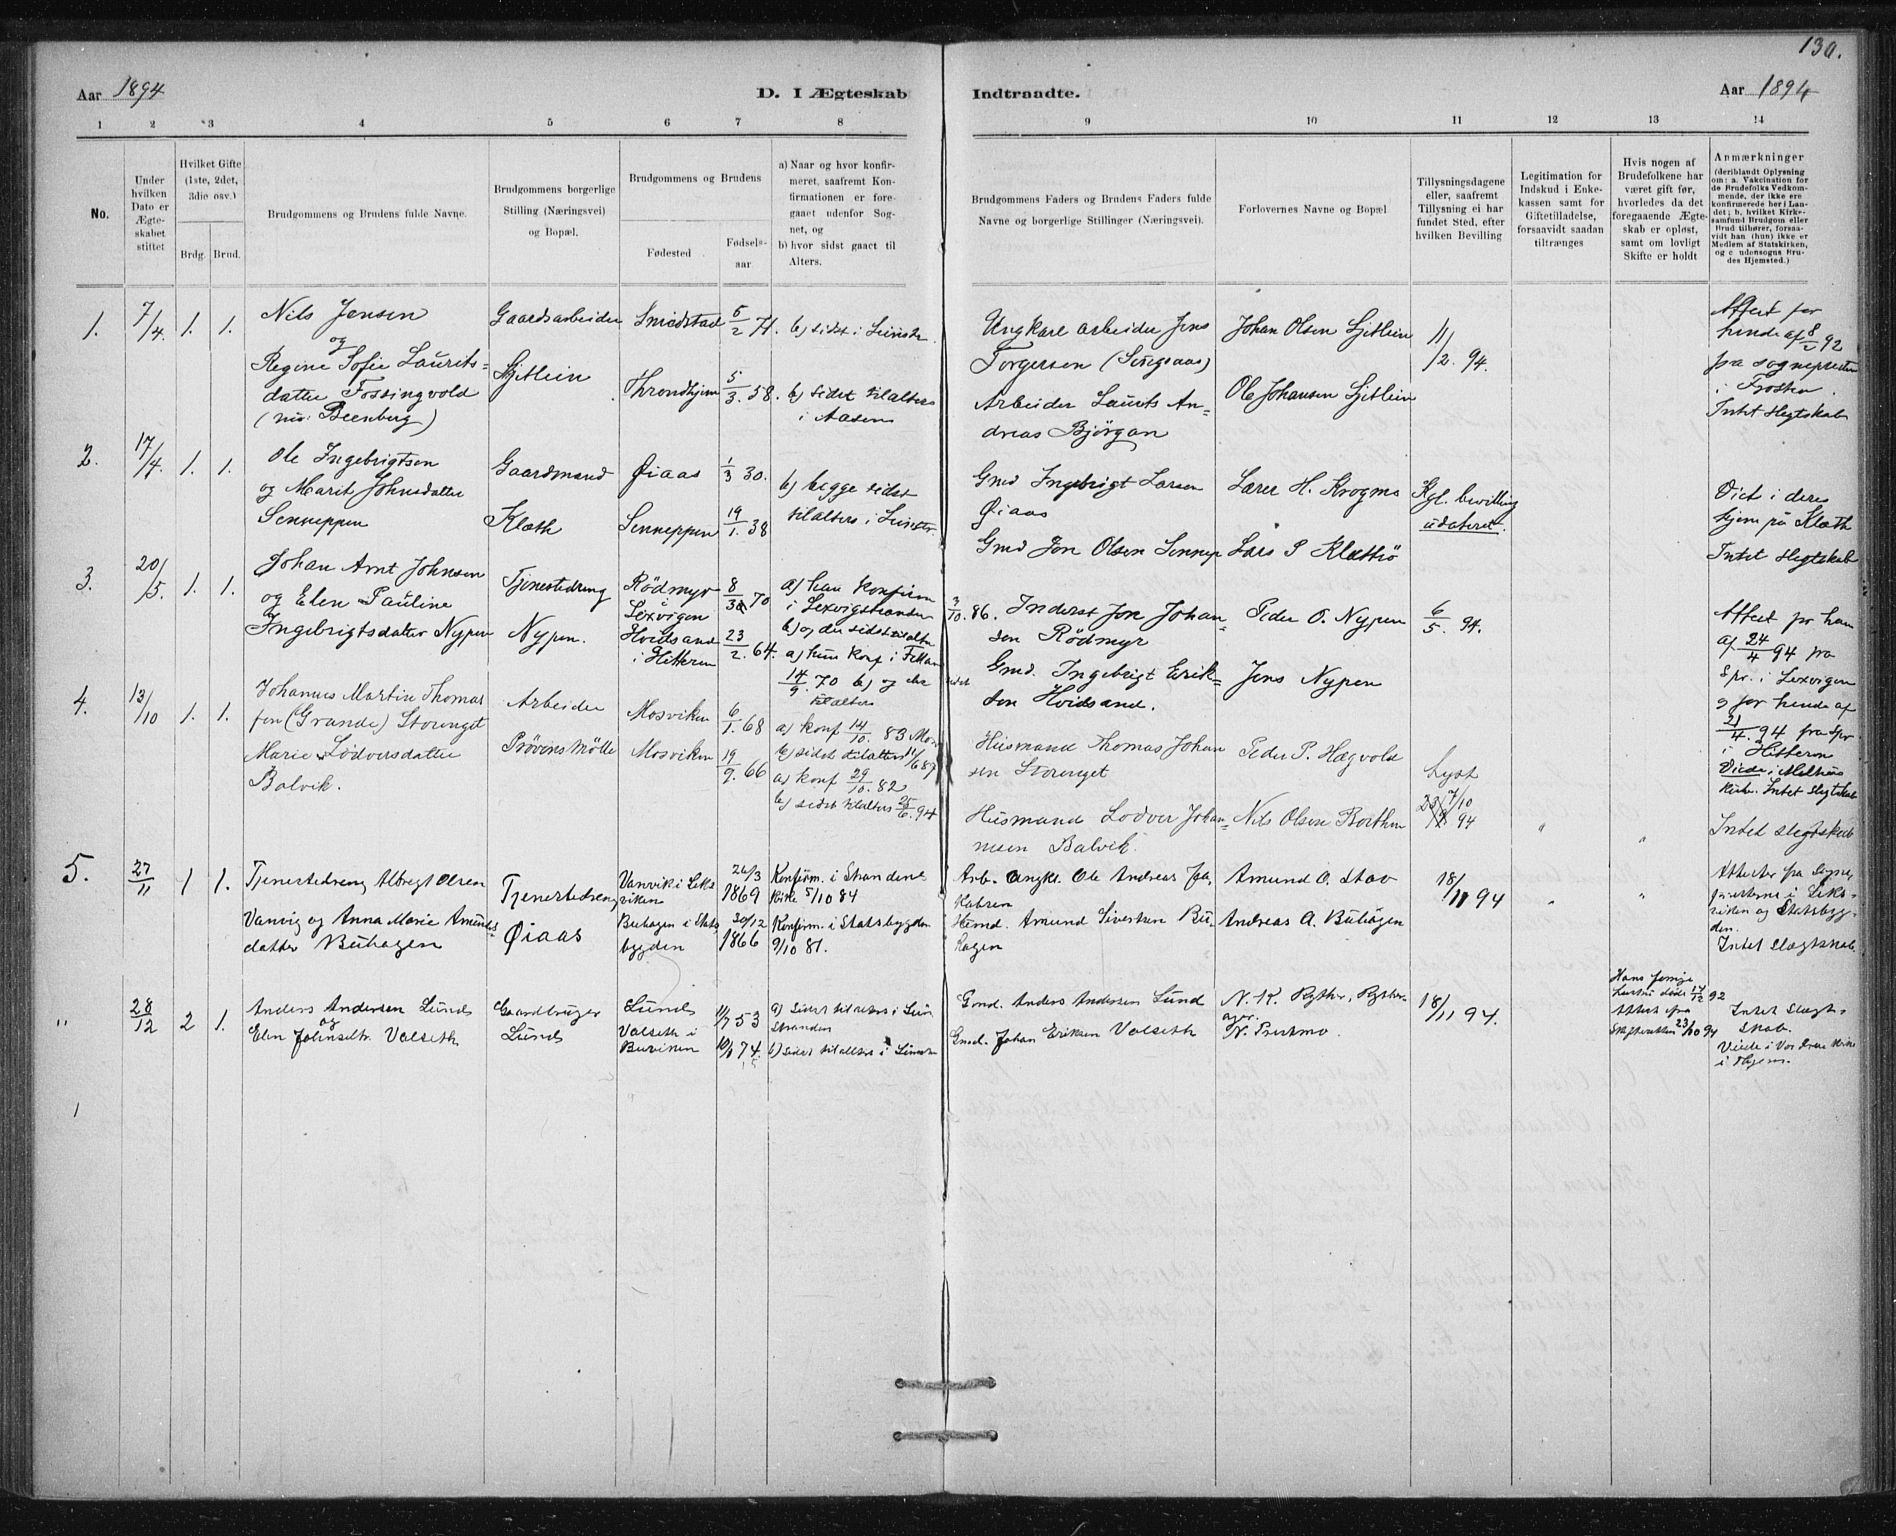 130.
Aar 1894
D. I Ægteskab
Indtraadte.
Aar 1894
1 2 3 4 5 6 7 8 9 10 11 12 13 14
No.
Under hvilken Dato er Ægteskabet stiftet
Hvilket Gifte (1ste, 2det, 3die osv.)
Brdg. Brud.
Brudgommens og Brudens fulde Navne.
Brudgommens borgerlige Stilling (Næringsvei) og Bopæl.
Brudgommens og Brudens
Fødested
Fødselsaar.
a) Naar og hvor konfirmeret, saafremt Konfirmationen er foregaaet udenfor Sognet, og
b) hvor sidst gaaet til Alters.
Brudgommens Faders og Brudens Faders fulde Navne og borgerlige Stillinger (Næringsvei).
Forlovernes Navne og Bopæl
Tillysningsdagene eller, saafremt Tillysning ei har fundet Sted, efter hvilken Bevilling
Legitimation for Indskud i Enkekassen samt for Giftetilladelse, forsaavidt saadan tiltrænges
Hvis nogen af Brudefolkene har været gift før, hvorledes da det foregaaende Ægteskab er opløst, samt om lovligt Skifte er holdt
Anmærkninger
(deriblandt Oplysning om: a. Vakcination for de Brudefolks Vedkommende, der ikke ere konfirmerede her i Landet; b, hvilket Kirkesamfund Brudgom eller Brud tilhører, forsaavidt han (hun) ikke er Medlem af Statskirken, og c udensogns Brudes Hjemsted.)
1. 7/4. 1. 1.
Nils Jensen
og
Regine Sofie Laurits=
datter Fossingvold
Gaardsarbeider
Sjetlein
5/2 71.
Throndhjem
5/3. 58.
b) sidst i Leinstr.
b) sidst tilalters
i Aasen
Ungkarl arbeider Jens
Torgersen (Singsaas)
Arbeider Laurits An=
dreas Bjørgan
Johan Olsen Sjetlein
Ole Johansen Sjetlein
11/2. 94.
Attest for
hende af 8/2 92
fra sognepresten
i Frosten.
Intet slegtskab
2. 17/4. 1. 1.
Ole Ingebrigtsen
og Marit Johnsdatter
Senneppen
Gaardmand
Klæth
Øiaas
Senneppen
1/3 30.
19/1. 38
b) begge sidst
tilalters i Leinstr.
Gmd Ingebrigt Larsen
Øiaas
Gmd Jon Olsen Sennep
Lærer H. Krogmo
Lars P Klættrø
Kgl. bevilling
udateret.
Viet i deres
hjem på Klæth
Intet slegtskab
3. 20/5. 1. 1.
Johan Arnt Johnsen
og Elen Pauline
Ingebrigtsdatter Nypen
Tjenestedreng
Nypen.
Rödmyr
Lexvigen
Hvidsand
i Hitteren
70
23/2. 64.
a) han konfirm
i Lexvigstranden 3/10. 86.
b) og der sidst tilalters
a) hun konf i Fillan
14/9. 70 b) og der sidst
tilalters
Inderst Jon Johan=
sen Rødmyr
Gmd. Ingebrigt Erik=
sen Hvidsand.
Peder O. Nypen
Jens Nypen
6/5. 94.
Attest for ham
af 24/4 94 fra
Spr. i Lexvigen
og for hende af
21/4. 94 fra Spr
i Hitteren
Viede i Melhus
Kirke. Intet slegtskab
4. 13/10 1. 1.
Johannes Martin Thomas
sen (Grande) Storenget
Marie Lodversdatter
Balvik.
Arbeider
Mosviken
Mosviken
6/1. 68
19/9. 66
a) konf 14/10. 83 Mosv
b) sidst tilalters 11/6 87
a) konf 29/10. 82
b) sidst tilalters 25/6. 94
Husmand Thomas Johan
sen Storenget
Husmand Lodver Johan=
nesen Balvik.
Peder P. Hægvold
Nils Olsen Borthen
Lyst
7/10
94
"
"
Intet slegtskab
5. 27/11 1 1.
Tjenestedreng Albregt Olsen
Vanvig og Anna Marie Amunds=
datter Buhagen
Tjenestedreng
Øiaas
Vanvik i Leks
viken
Buhagen i Stats
bygden
26/3
1869
20/12
1866
Konfirm. i Strandens
Kirke 5/10 84
Konfirm. i Statsbygden
9/10 81.
Arb. Ungk. Ole Andreas Ja=
kobsen
Husmd. Amund Sivertsen Bu=
hagen
Amund O. Stav
Andreas A. Buhagen
18/11 94
"
"
Attester fra Sogne=
presterne i Leks=
viken og Statsbyg=
den.
Intet Slægtskab.
" 28/12 2 1.
Anders Andersen Lund
og
Elen Johnsdtr. Valseth
Gaardbruger
Lund
Lund
Valseth i
Buviken
11/7 53
10/1 74.
a) Sidst tilalters i Lein
stranden
b) Sidst tilalters i Leinstr
Gmd. Anders Andersen Lund
Gmd. Johan Eriksen Valseth
N. K. Ryther, Ryther=
ager.
N. Prestmo.
18/11 94.
Hans forrige
hustru døde 17/12 92
Attest fra
Skifteretten 23/10 94
Intet Slægt=
skab.
Viede i Vor Frue Kirke
i Thjem.